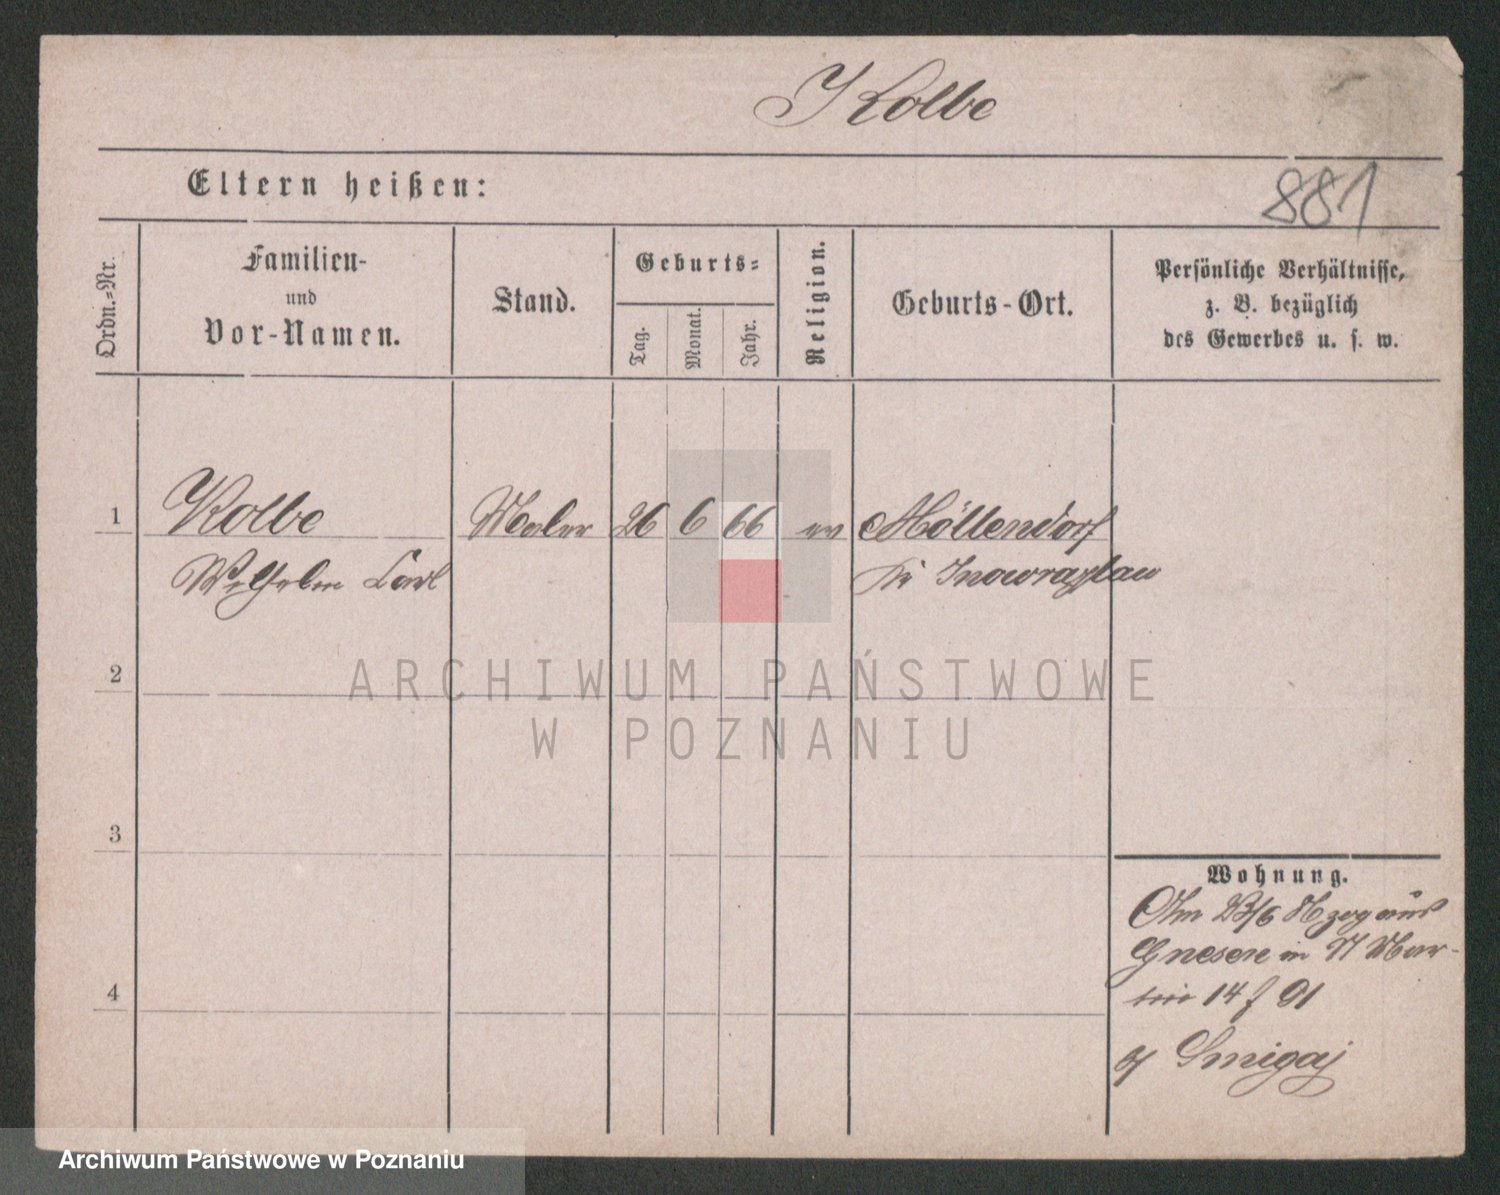 Kolbe
Eltern heißen:
881
Ordn.=Nr.
Familien-
und
Vor-Namen.
Stand.
Geburts=
Tag.
Monat.
Jahr.
Religion.
Geburts-Ort.
Persönliche Verhältnisse,
z. B. bezüglich
des Gewerbes u. s. w.
1
Kolbe
Maler
26
6
66
ev
Möllendorf
Wilhelm Carl
Kr Inowrazlau
2
ARCHIWUM PAŃSTWOWE
W POZNANIU
3
Wohnung.
23/6
aus
Gnesen in St Mar-
tin 14
91
4
Smigaj
Archiwum Państwowe w Poznaniu